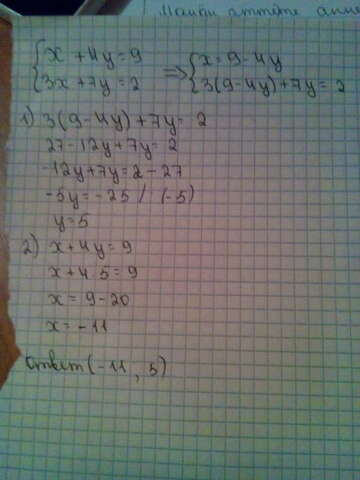 { x + 4y = 9 => { x = 9 - 4y
{ 3x + 7y = 2 { 3(9 - 4y) + 7y = 2
1) 3(9 - 4y) + 7y = 2
27 - 12y + 7y = 2
-12y + 7y = 2 - 27
-5y = -25 / (-5)
y = 5
2) x + 4y = 9
x + 4 5 = 9
x = 9 - 20
x = -11
Ответ (-11, 5)